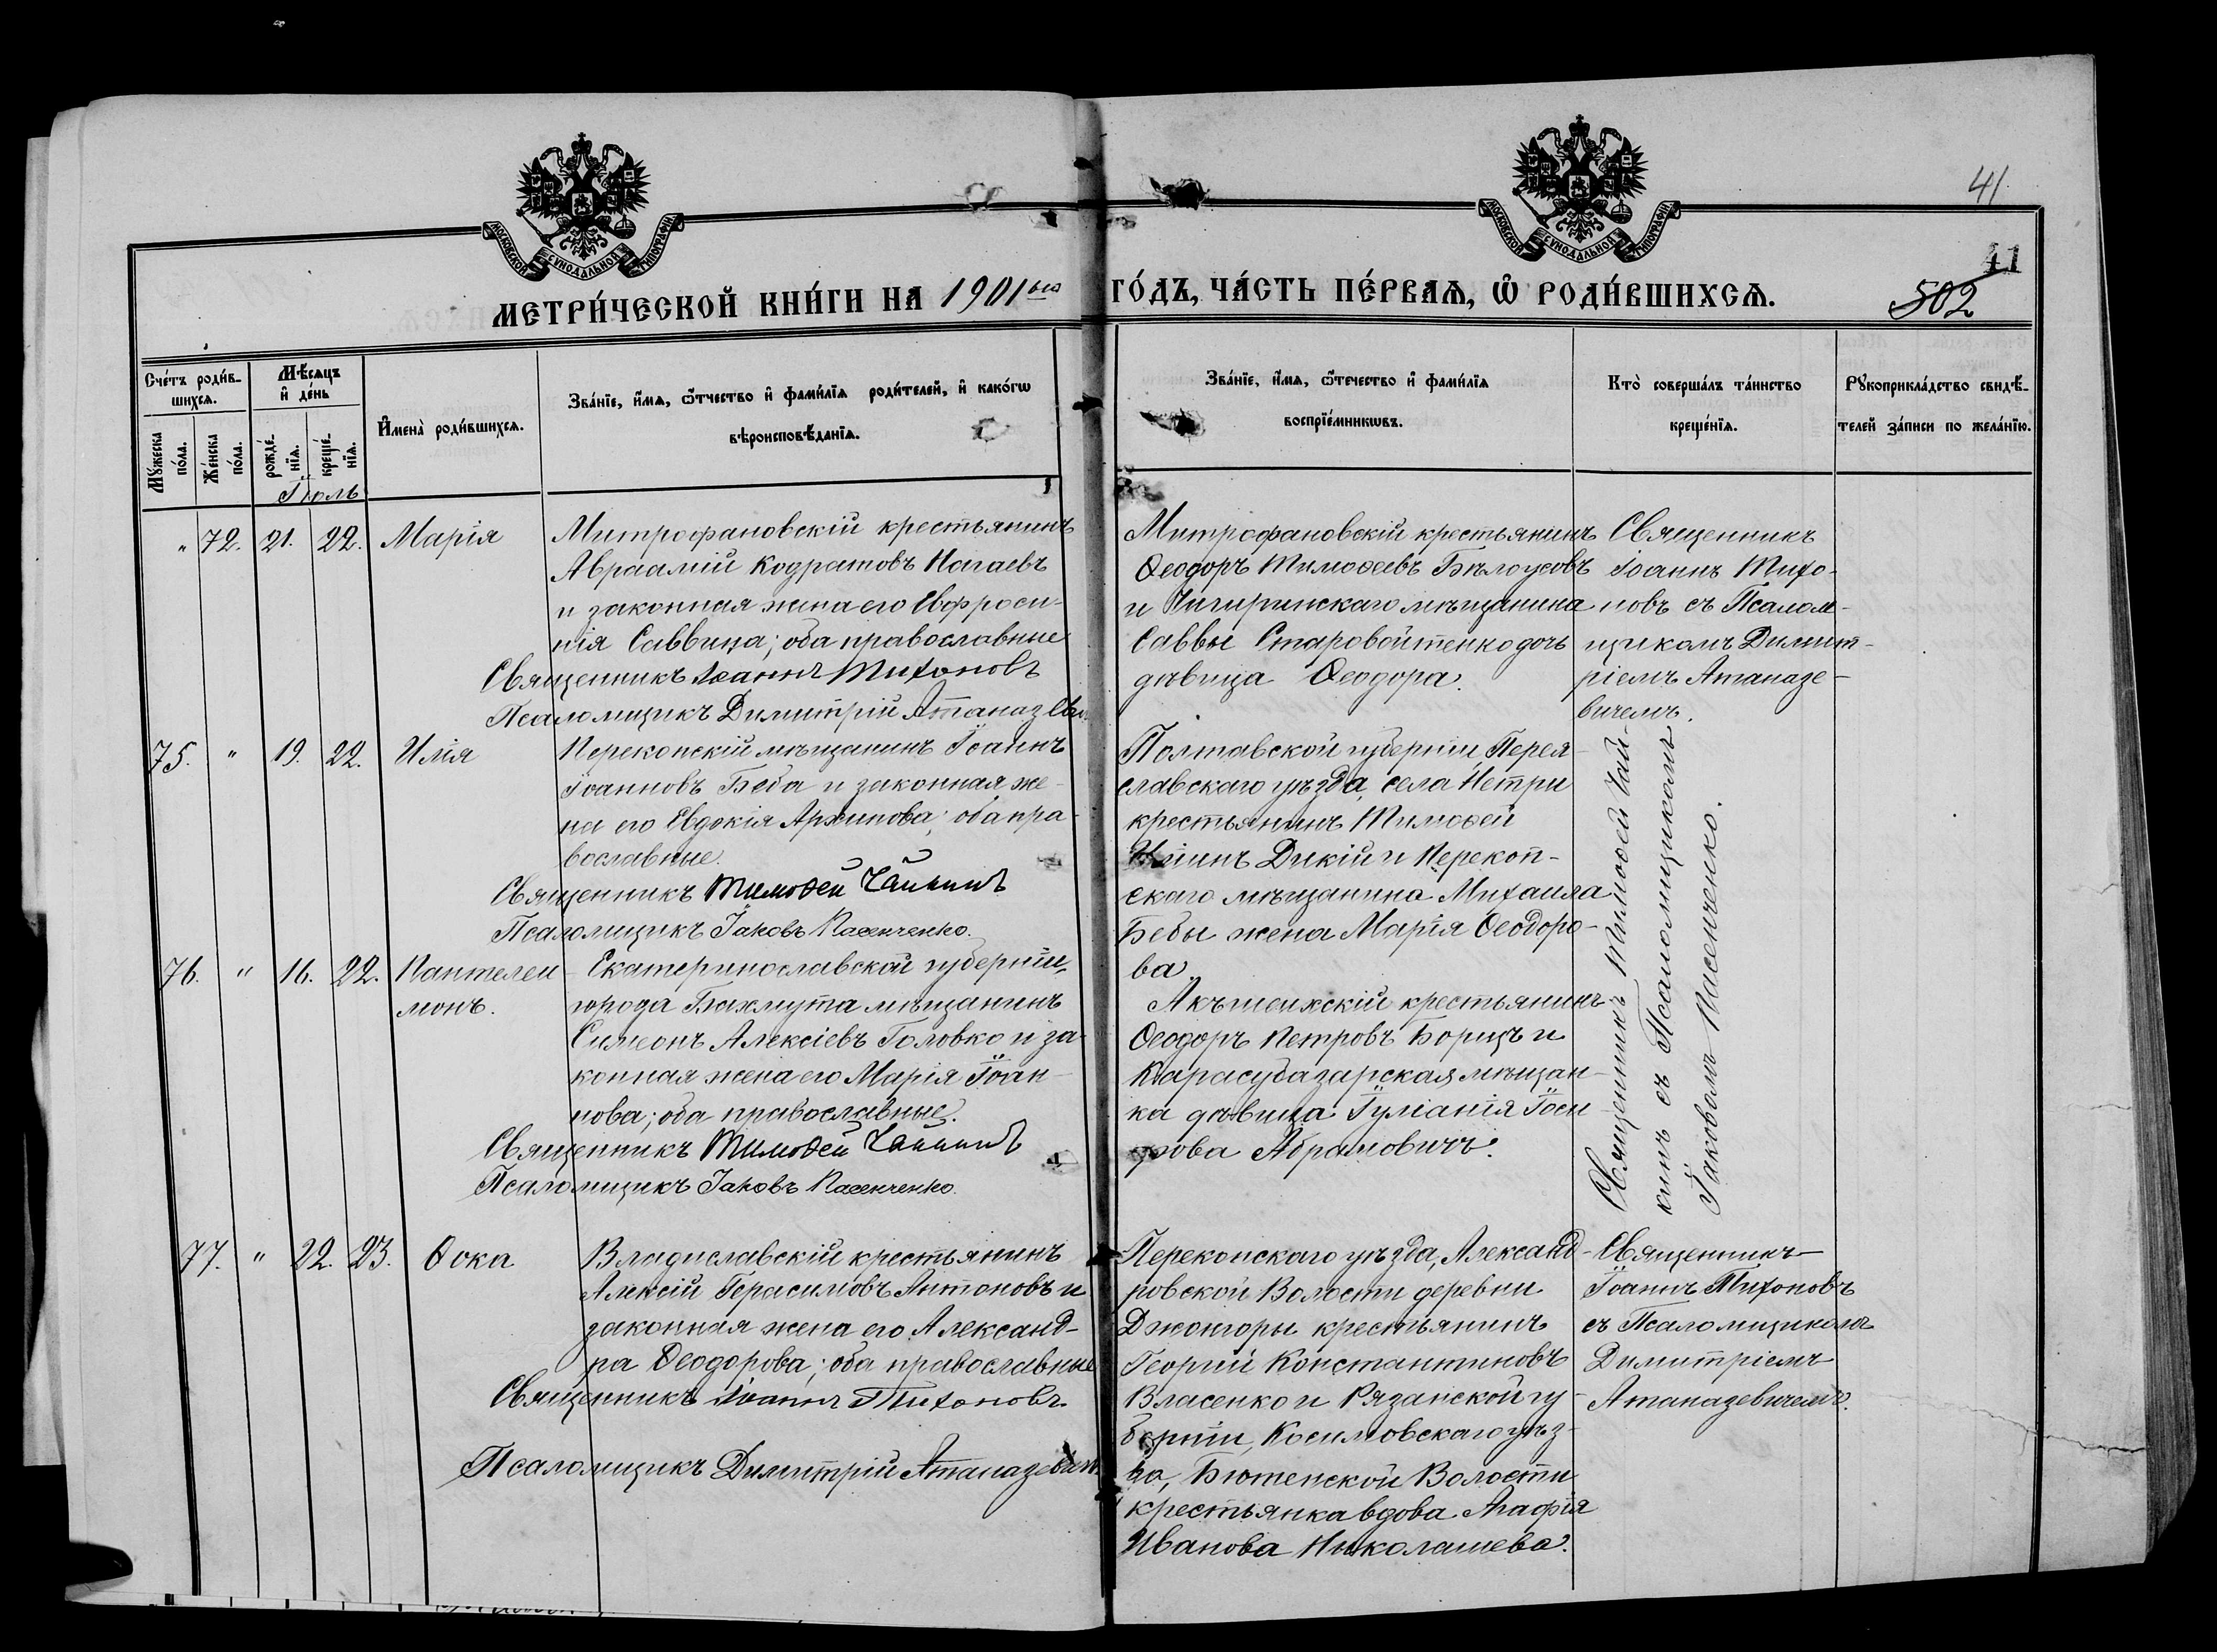 41.
41
502
МОСКОВСКОЙ СѴНОДАЛЬНОЙ ТИПОГРАФІИ
МОСКОВСКОЙ СѴНОДАЛЬНОЙ ТИПОГРАФІИ
МЕТРИ́ЧЕСКОЙ КНИ́ГИ НА 1901ый ГО́ДЪ, ЧА́СТЬ ПЕ́РВАѦ, Ѡ҆ РОДИ́ВШИХСѦ.
Сче́тъ роди́в-
шихсѧ.
Мꙋ́жеска по́ла.
Же́нска по́ла.
Мѣ́сѧцъ
и҆ де́нь
рожде́-
нїѧ.
креще́-
нїѧ.
И҆мена̀ роди́вшихсѧ.
Зва́нїе, и҆́мѧ, ѻ҆́тчество и҆ фами́лїѧ роди́телей, и҆ како́гѡ
вѣроисповѣ́данїѧ.
Зва́нїе, и҆́мѧ, ѻ҆те́чество и҆ фами́лїѧ
воспрїе́мникѡвъ.
Кто̀ соверша́лъ та́инство
креще́нїѧ.
Рꙋкоприкла́дство свидѣ́-
телей за́писи по жела́нїю.
Іюль
" 72. 21. 22. Марія
Митрофановскій крестьянинъ
Авраамій Кодратовъ Нагаевъ
и законная жена его Евфроси-
нія Саввина; оба православные
Священникъ Іоаннъ Тихоновъ
Псаломщикъ Димитрій Атаназеви
Митрофановскій крестьянинъ
Ѳеодоръ Тимоѳеевъ Бѣлоусовъ
и Чигиринскаго мѣщанина
Саввы Старовойтенко дочь
дѣвица Ѳеодора.
Священникъ
Іоаннъ Тихо-
новъ съ Псалом-
щикомъ Димит-
ріемъ Атаназе-
вичемъ.
75. " 19. 22. Илія
Перекопскій мѣщанинъ Іоаннъ
Іоанновъ Беба и законная же-
на его Евдокія Архипова; оба пра-
вославные.
Священникъ Тимоѳей Чайкинъ
Псаломщикъ Іаковъ Пасенченко.
Полтавской губерніи, Перея-
славскаго уѣзда, села
крестьянинъ Тимоѳей
Дикій и Перекоп-
скаго мѣщанина Михаила
Бебы жена Марія Ѳеодоро-
ва.
Священникъ Тимоѳей Чай-
кинъ съ Псаломщикомъ
Іаковомъ Пасенченко.
76. " 16. 22. Пантелеи
монъ.
Екатеринославской губерніи,
города Бахмута мѣщанинъ
Симеонъ Алексіевъ Головко и за-
конная жена его Марія Іоан-
нова; оба православные.
Священникъ Тимоѳей Чайкинъ
Псаломщикъ Іаковъ Пасенченко.
крестьянинъ
Ѳеодоръ Петровъ Борщъ и
Карасубазарская мѣщан-
ка дѣвица Іуліанія Іоси-
фова Абрамовичъ.
77. " 22. 23. Ѳока
Владиславскій крестьянинъ
Алексій Герасимовъ Антоновъ и
законная жена его Александ-
ра Ѳеодорова; оба православные
Священникъ Іоаннъ Тихоновъ
Псаломщикъ Димитрій Атаназевич
Перекопскаго уѣзда, Александ-
ровской Волости деревни
Джонгоры крестьянинъ
Георгій Константиновъ
Власенко и Рязанской гу-
берніи, Косимовскаго уѣз-
да, Бютенской Волости
крестьянка вдова Агафія
Иванова Николашева.
Священникъ
Іоаннъ Тихоновъ
съ Псаломщикомъ
Димитріемъ
Атаназевичемъ.